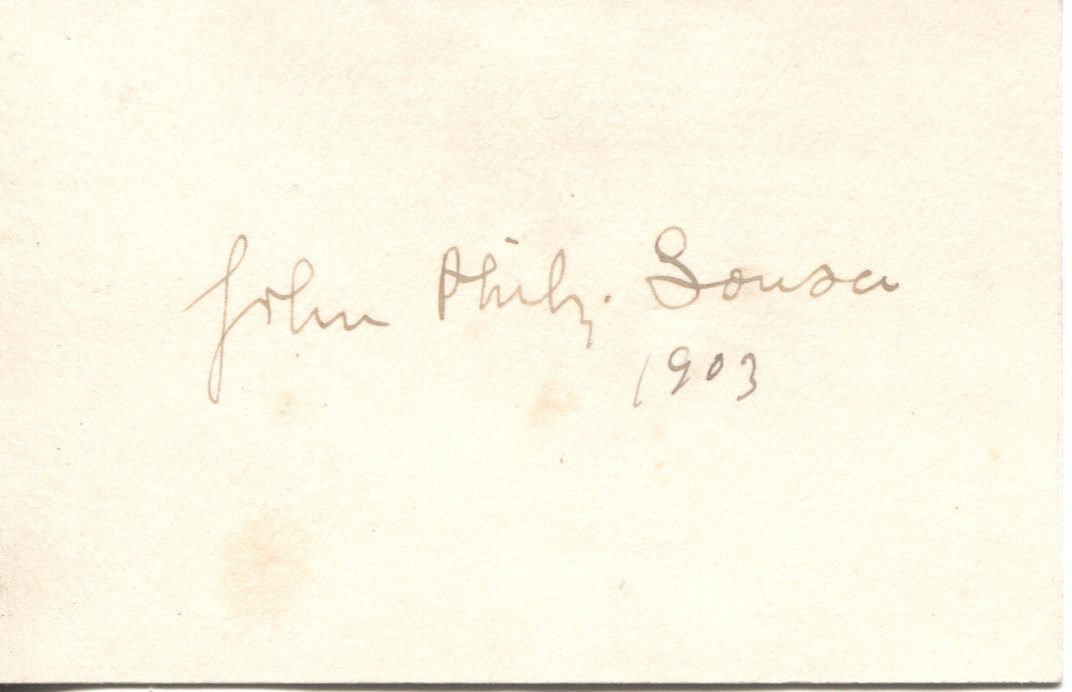 John Philip Sousa
1903